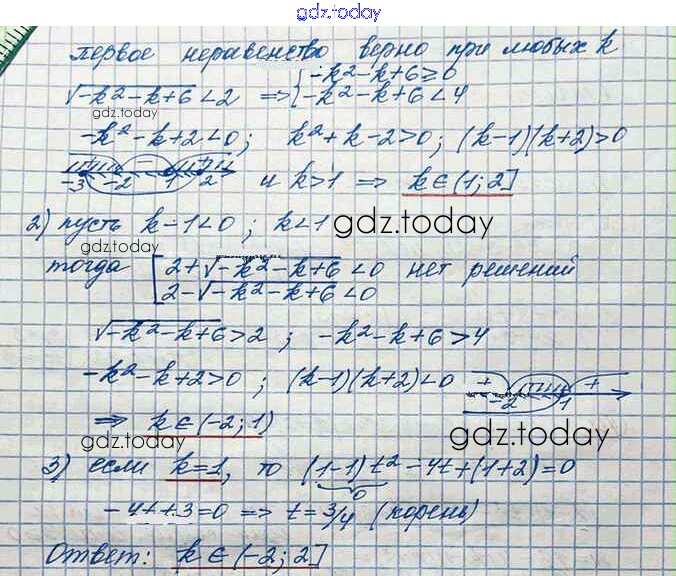 gdz.today
первое неравенство верно при любых k
√-k²-k+6 < 2 ⇒ { -k²-k+6 ≥ 0
-k²-k+6 < 4
gdz.today
-k²-k+2 < 0; k²+k-2 > 0; (k-1)(k+2) > 0
+ - +
-3 -2 1 2 и k>1 ⇒ k∈(1; 2]
2) пусть k-1<0; k<1
gdz.today
gdz.today
тогда [ 2+√-k²-k+6 < 0 нет решений
2-√-k²-k+6 < 0
√-k²-k+6 > 2; -k²-k+6 > 4
-k²-k+2 > 0; (k-1)(k+2) < 0
+ +
-2 1
⇒ k∈(-2; 1)
gdz.today
gdz.today
3) если k=1, то (1-1)t²-4t+(1+2)=0
0
-4t+3=0 ⇒ t=3/4 (корень)
Ответ: k∈(-2; 2]